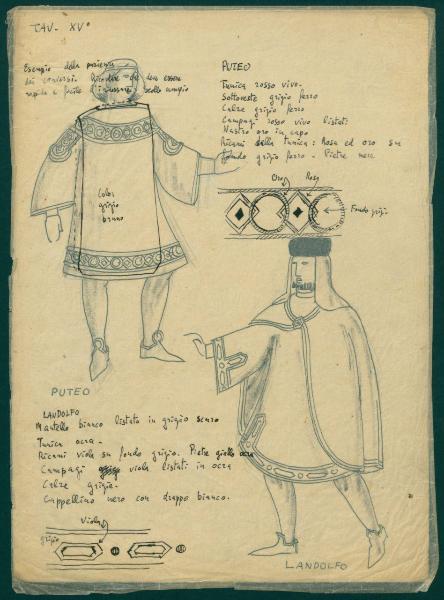 TAV. XV°
Esempio della
dei Ricordare che deve essere
rapida e facile collo ampio
PUTEO
Tunica rosso vivo.
Sottoveste grigio ferro
Calze grigio ferro
Campagi rosso vivo listati
Nastro oro in capo
Ricami della tunica: Rosa ed oro su
fondo grigio ferro. Pietre nere
Oro Rosa
Fondo grigio
Color
grigio
bruno
PUTEO
LANDOLFO
Mantello bianco listata in grigio scuro
Tunica ocra.
Ricami viola su fondo grigio. Pietre giallo ocra
Campagi viola listati in ocra
Calze grigie.
Cappellino nero con drappo bianco.
Viola
grigio
LANDOLFO